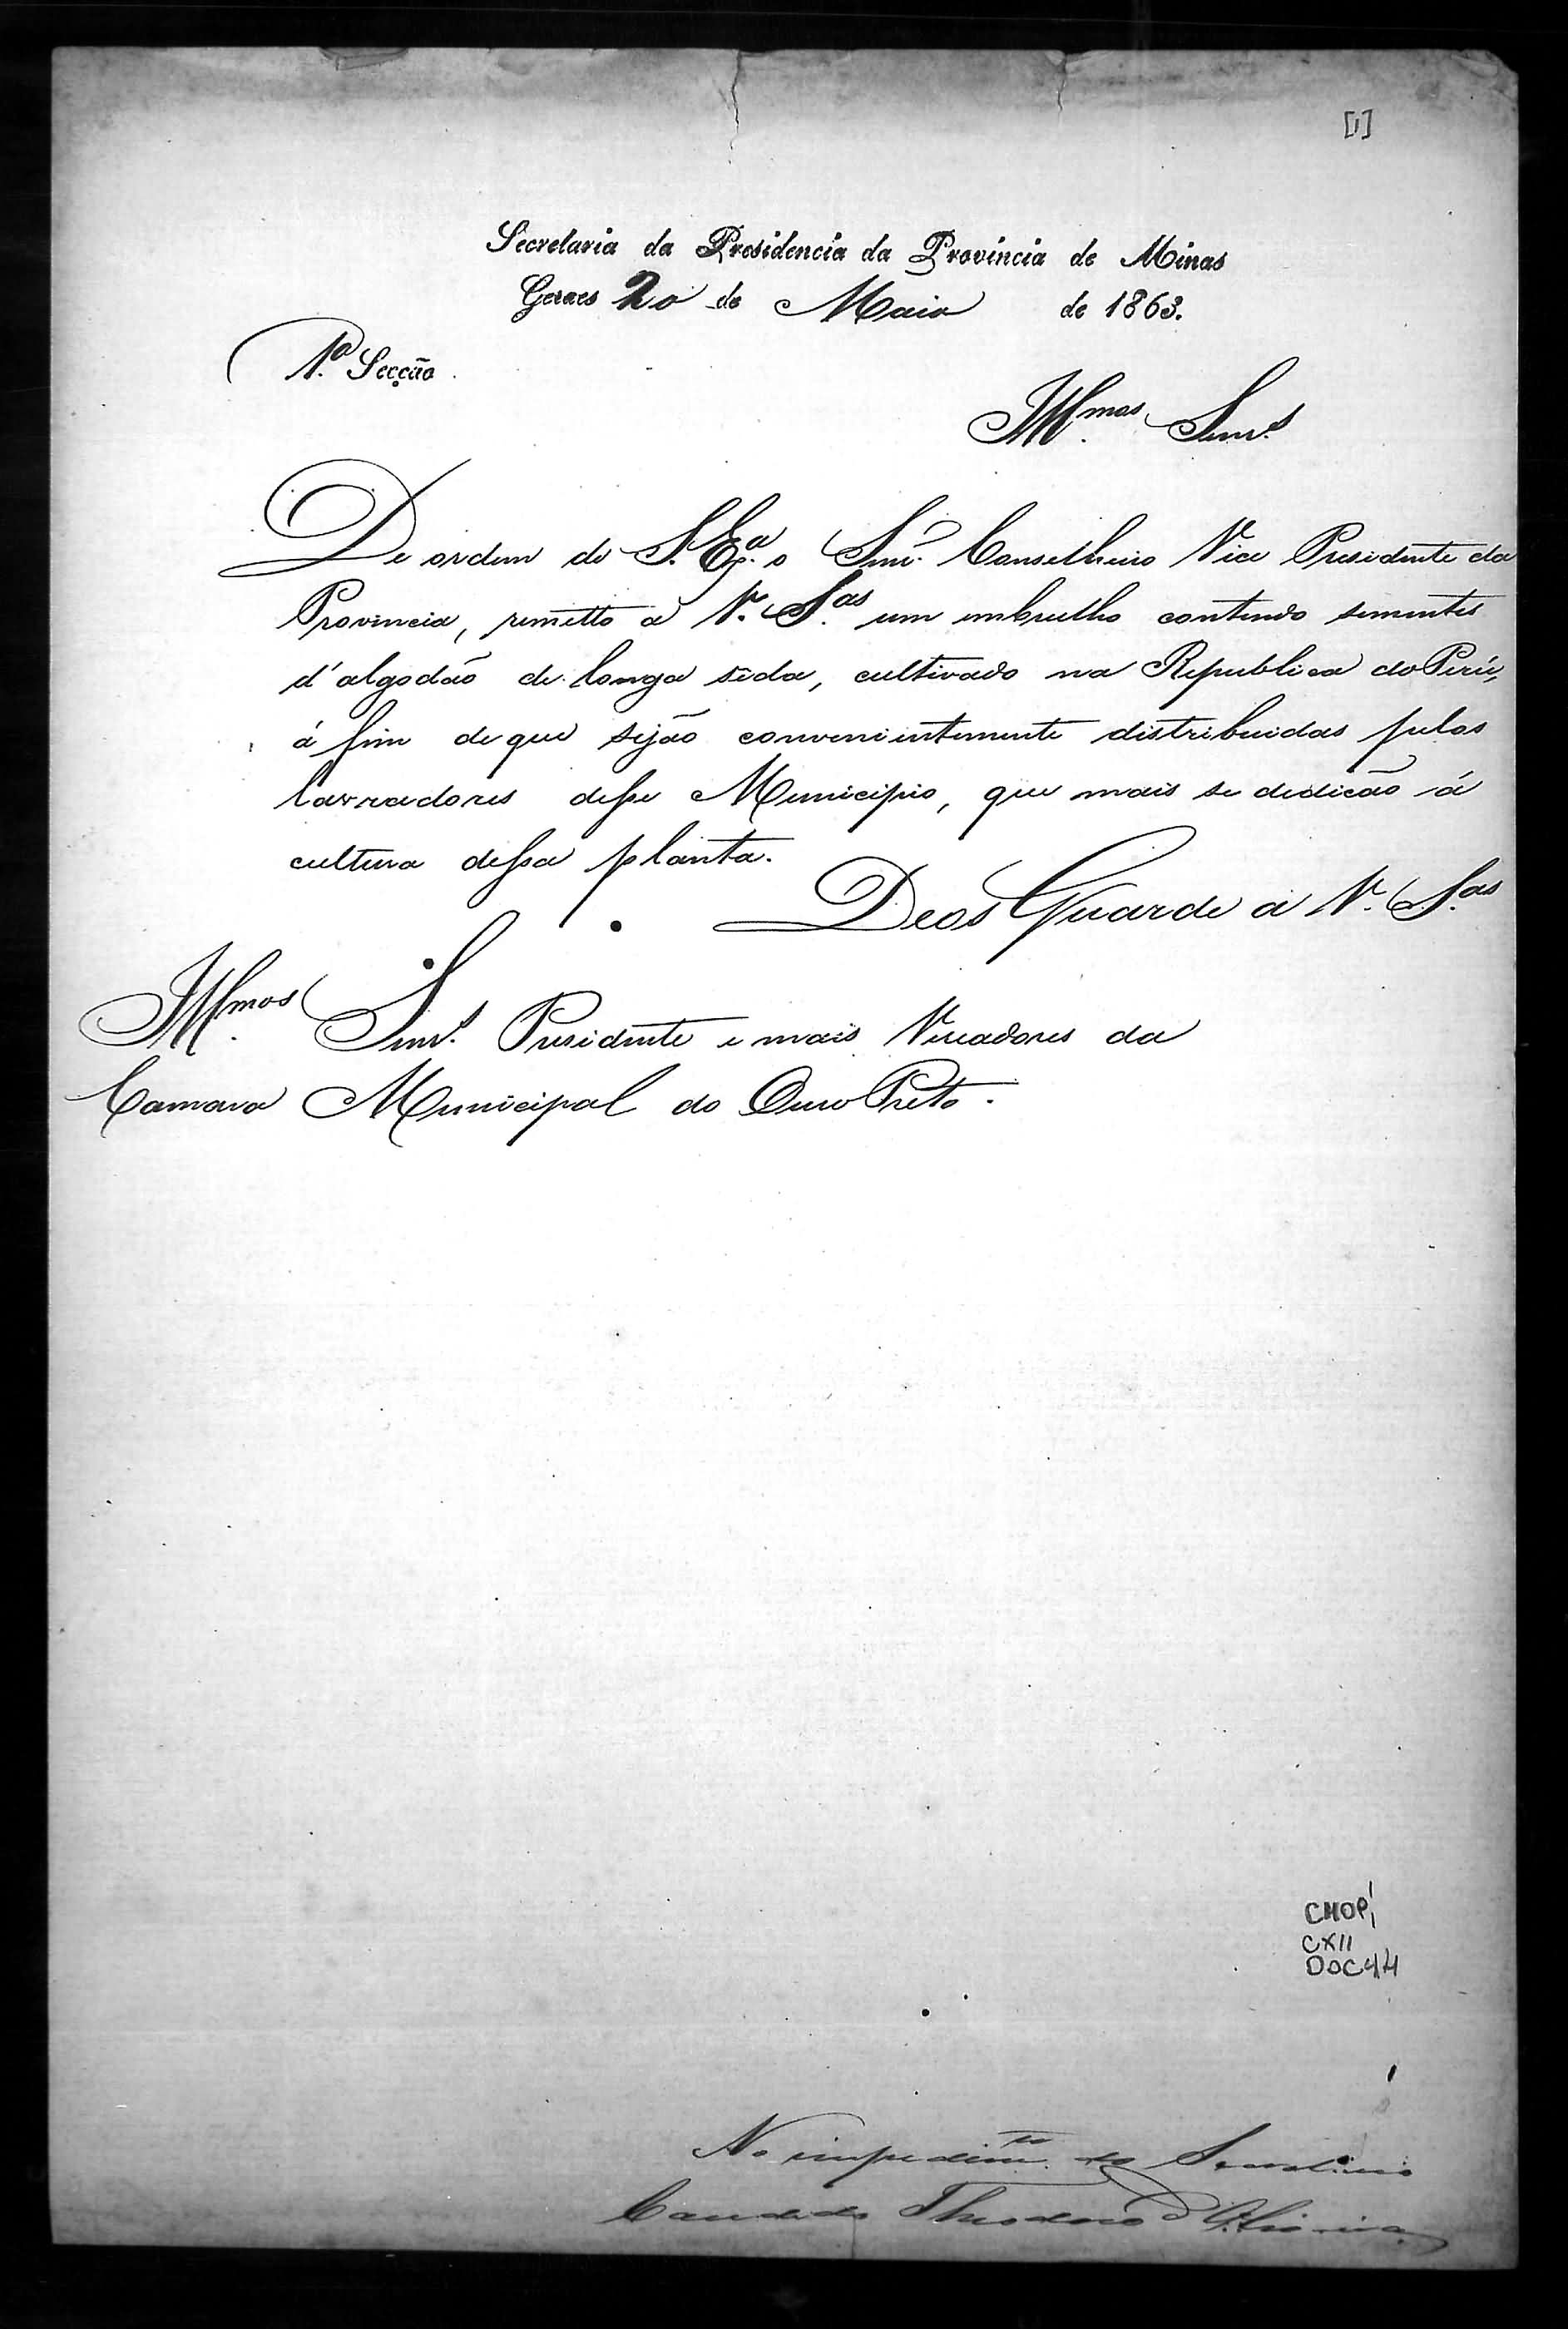 [1]
Secretaria da Presidencia da Provincia de Minas
Geraes 20 de Maio de 1863.
1.ª Secção
Ill.mos Snrs.
De ordem de S. Ex.ª o Snr. Conselheiro Vice Presidente da
Provincia, remetto a V. S.as um embrulho contendo sementes
d'algodão de longa sêda, cultivado na Republica do Perú,
á fim de que sejão convenientemente distribuidas pelos
lavradores desse Municipio, que mais se dedicão á
cultura dessa planta.
Deos Guarde a V. S.as
Ill.mos Snrs. Presidente e mais Vereadores da
Camara Municipal do Ouro Preto.
CMOP
CX11
DOC44
No impedim.to do Secretario
Candido Theodoro d'Oliveira